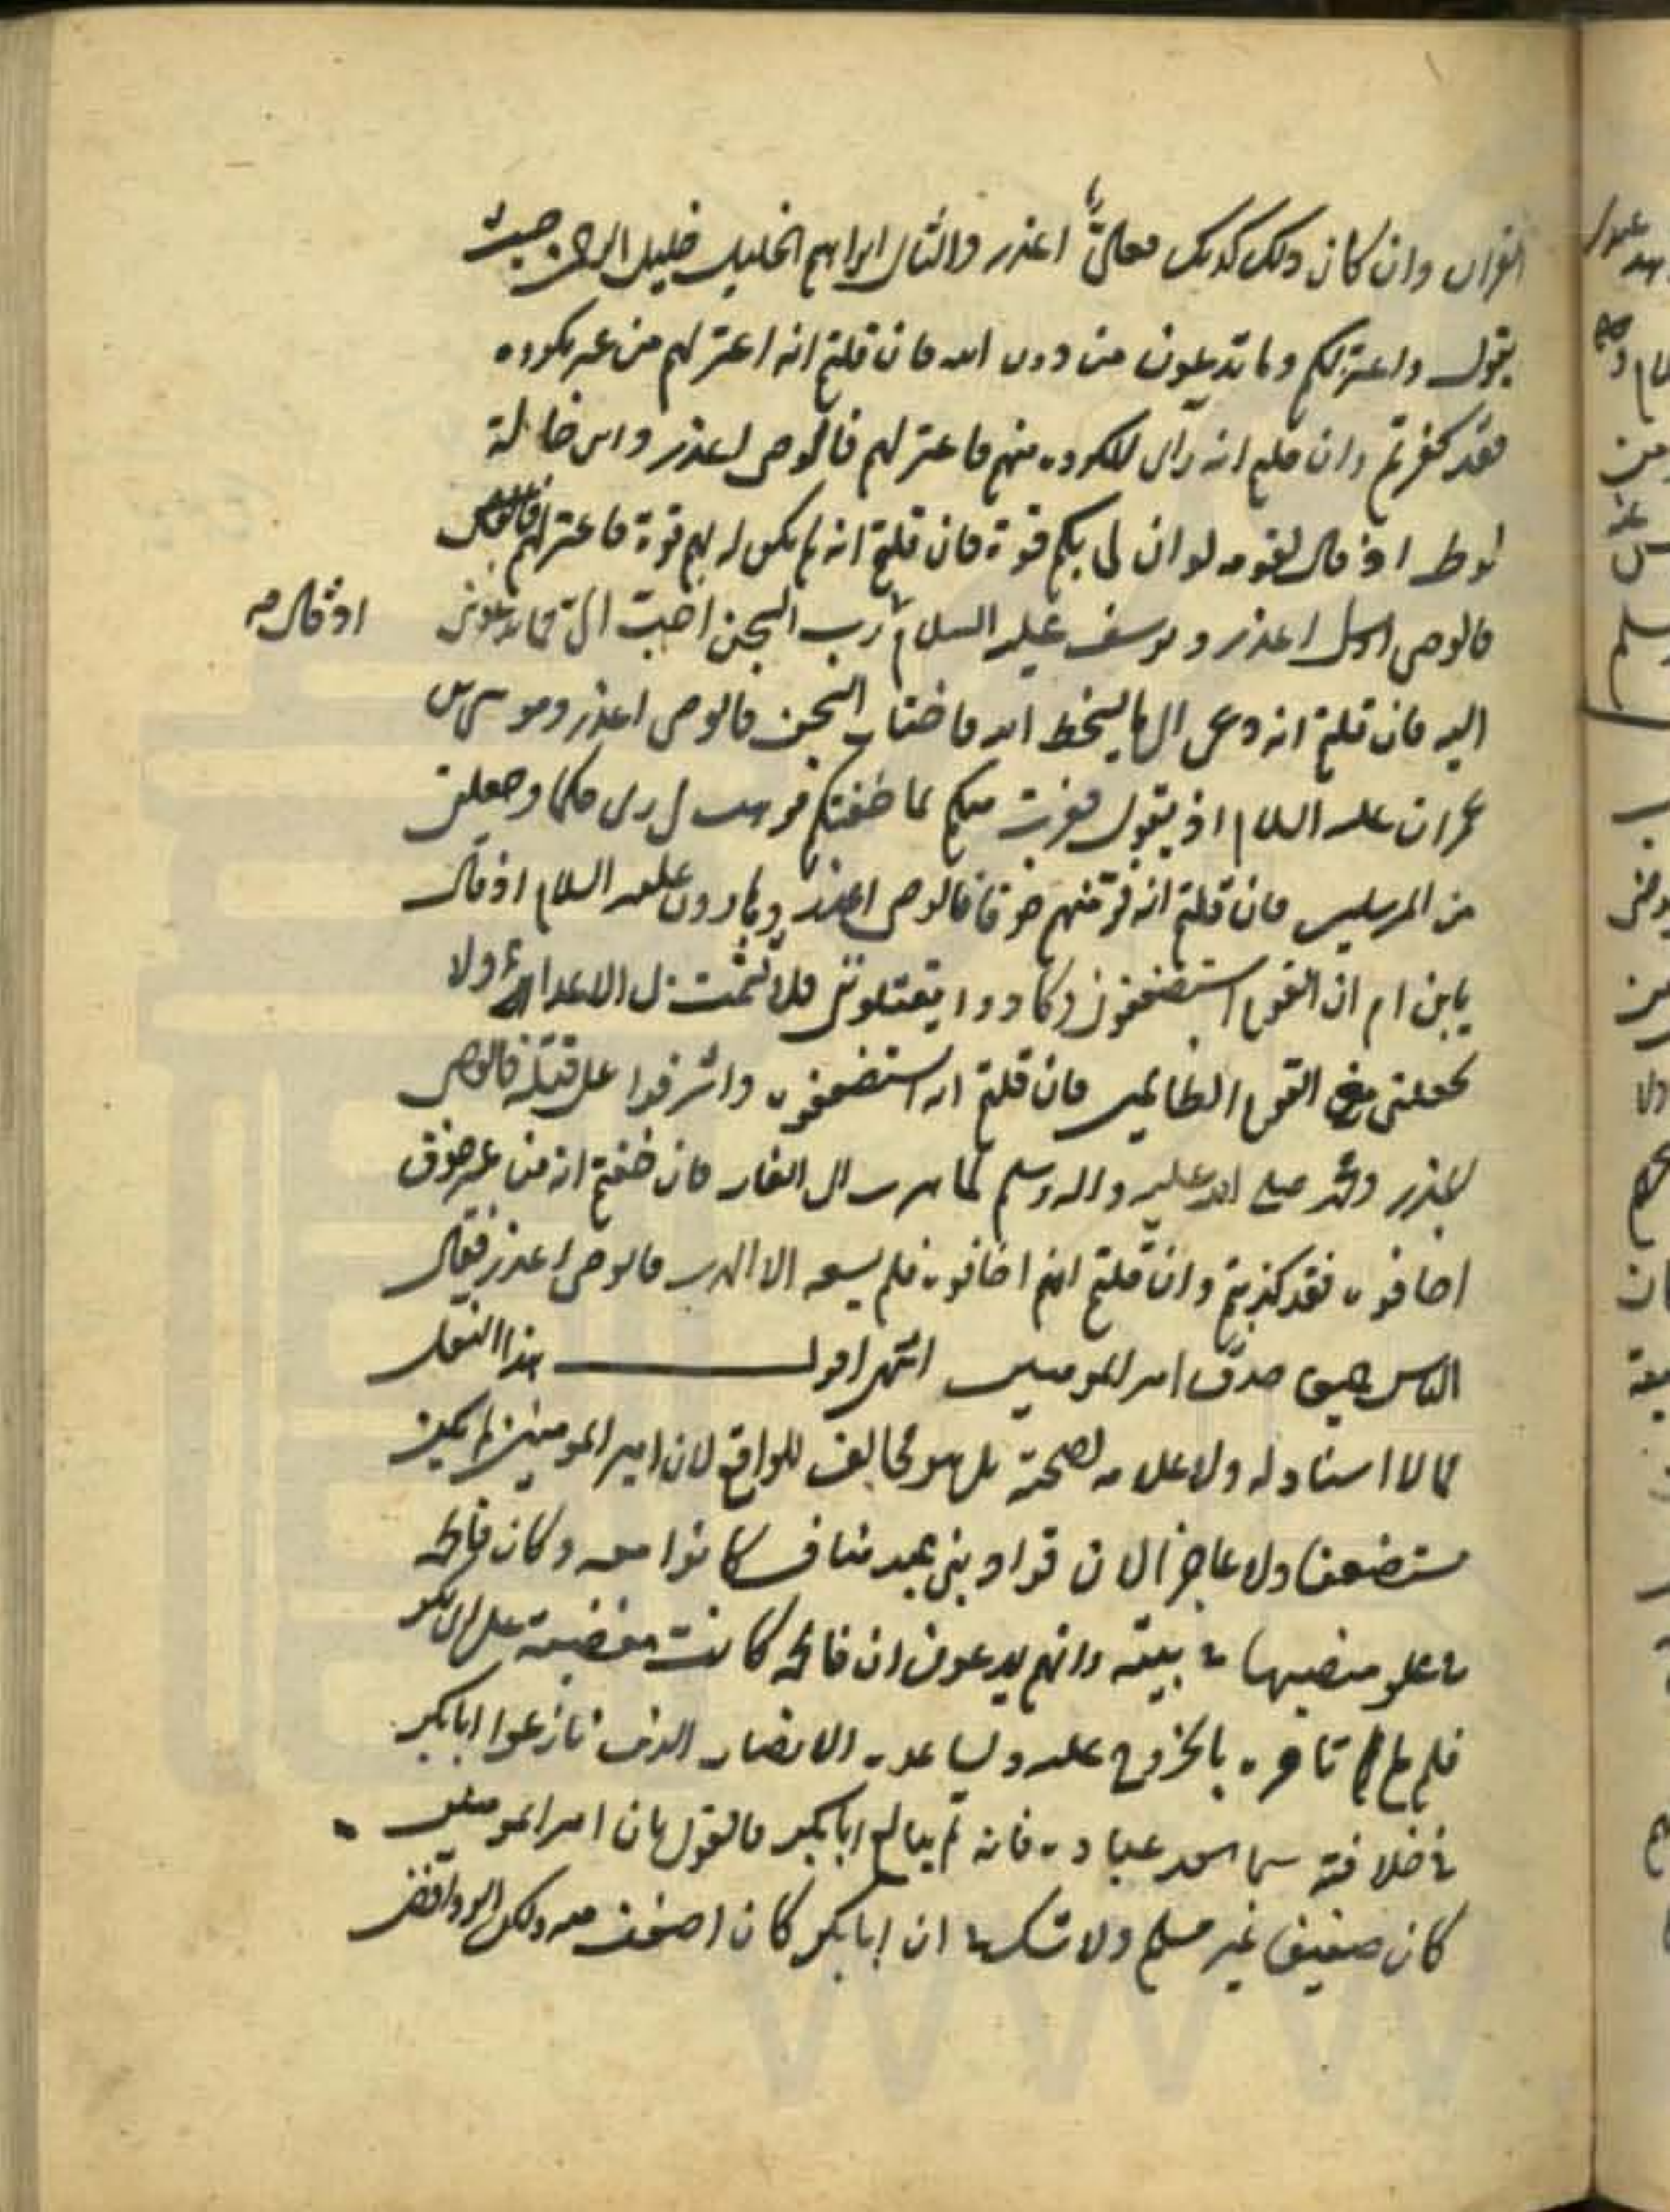 القران وان كان ذلك كذلك فعلى اعذر والثانى ابراهيم الخليل خليل الرحمن حيث
يقول واعتزلكم وما تدعون من دون الله فان قلتم انه اعتزلهم من غير مكروه
فقد كفرتم وان قلتم انه راى المكروه منهم فاعتزلهم فالوصى اعذر وابن خالة
لوط اذ قال لقومه لو ان لى بكم قوة فان قلتم انه لم يكن له بهم قوة فاعتزلهم
فالوصى اعذر ويوسف عليه السلام رب السجن احب الى مما يدعوننى
اذ قال
اليه فان قلتم انه دعى الى ما يسخط الله فاختار السجن فالوصى اعذر وموسى بن
عمران عليه السلام اذ يقول ففررت منكم لما خفتكم فوهب لى ربى حكما وجعلنى
من المرسلين فان قلتم انه فر منهم خوفا فالوصى اعذر وهارون عليه السلام اذ قال
يابن ام ان القوم استضعفونى وكادوا يقتلوننى فلا تشمت بى الاعداء ولا
تجعلنى مع القوم الظالمين فان قلتم انه استضعفوه واشرفوا على قتله فالوصى
اعذر ومحمد صلى الله عليه واله وسلم لما هرب الى الغار فان قلتم انه من غير خوف
اخافوه فقد كذبتم وان قلتم انهم اخافوه فلم يسعه الا الهرب فالوصى اعذر فقال
الناس صدق امير المومنين انتهى اقول هذا النقل
مما لا اسناد له ولا علامة لصحته بل هو مخالف للواقع لان امير المومنين لم يكن
مستضعفا ولا عاجزا لان قواد بنى عبد مناف كانوا معه وكان فاطمة
مع علو منصبها فى بيته وانهم يدعون ان فاطمة كانت مغضبة على ابى بكر
فلم لم تامره بالخروج عليه ويساعده الانصار الذين نازعوا ابا بكر
فى خلافته سيما سعد عبادة فانه لم يبايع ابا بكر فالقول بان امير المومنين
كان ضعيفا غير مسلم ولا شك ان ابا بكر كان اضعف منه ولكن الروافض